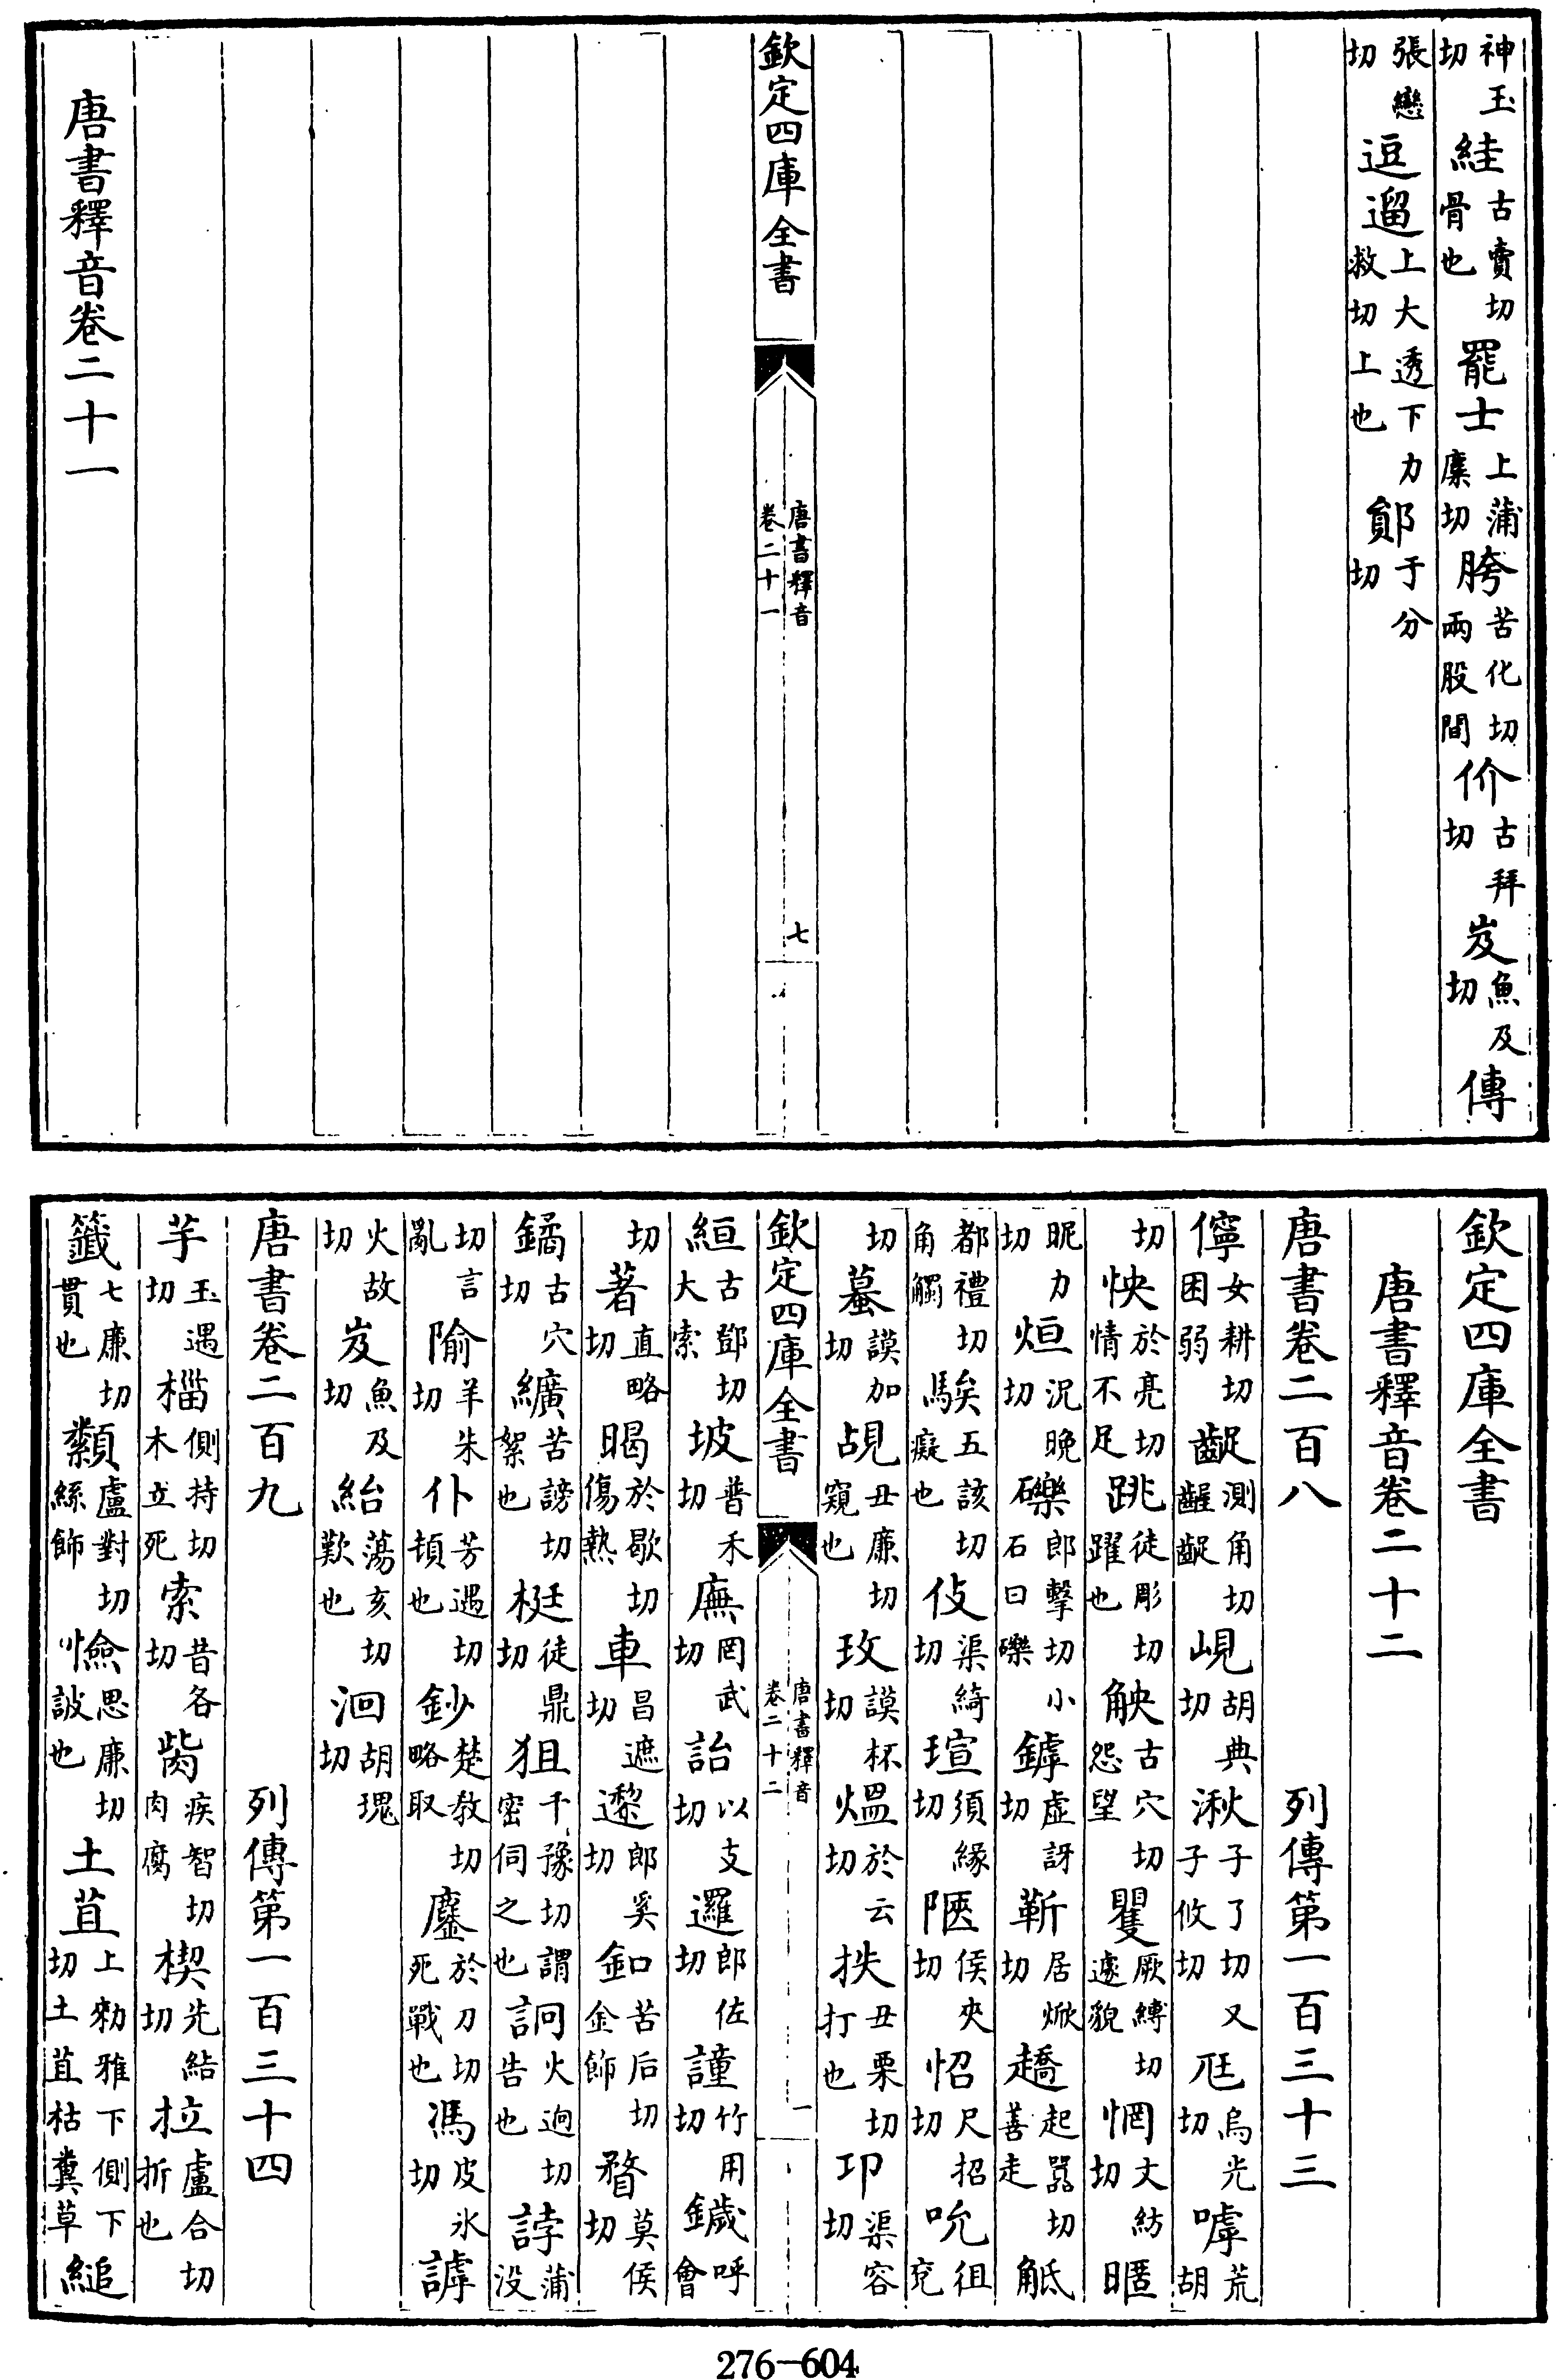 神玉切絓古賣切骨也罷士上蒲糜切胯苦化切兩股間价古拜切岌魚及切傳
張戀切逗遛上大透下力救切上也鄖于分切
欽定四庫全書
唐書釋音
卷二十一
七
唐書釋音卷二十一
欽定四庫全書
唐書釋音卷二十二
唐書卷二百八 列傳第一百三十三
儜女耕切困弱齪測角切齷齪峴胡典切湫子了切又子攸切尫烏光切嘑荒胡
切怏於亮切情不足跳徒彫切躍也觖古穴切怨望矍厥縛切遽貌惘文紡切暱
昵力切烜況晚切礫郎擊切小石曰礫鏬虛訝切靳居焮切趫起嚻切善走觝
都禮切角觸騃五該切癡也伎渠綺切瑄須緣切陿侯夾切怊尺招切吮徂兗
切蟇謨加切覘丑廉切窺也玫謨杯切熅於云切抶丑栗切打也卭渠容切
欽定四庫全書
唐書釋音
卷二十二
一
絙古鄧切大索坡普禾切廡罔武切詒以支切邏郎佐切諥竹用切鐬呼會
切著直略切暍於歇切傷熱車昌遮切邌郎奚切釦苦后切金飾瞀莫侯切
鐍古穴切纊苦謗切絮也梃徒鼎切狙千豫切謂密伺之也詗火逈切告也誖蒲没
切言亂隃羊朱切仆芳遇切頓也鈔楚教切略取鏖於刀切死戰也馮皮氷切謼
火故切岌魚及切紿蕩亥切歎也洄胡瑰切
唐書卷二百九 列傳第一百三十四
芋玉遇切椔側持切木立死索昔各切胔疾智切肉腐楔先結切拉盧合切折也
籖七廉切貫也纇盧對切絲飾憸思廉切詖也土苴上勑雅下側下切土苴枯糞草縋
276-604